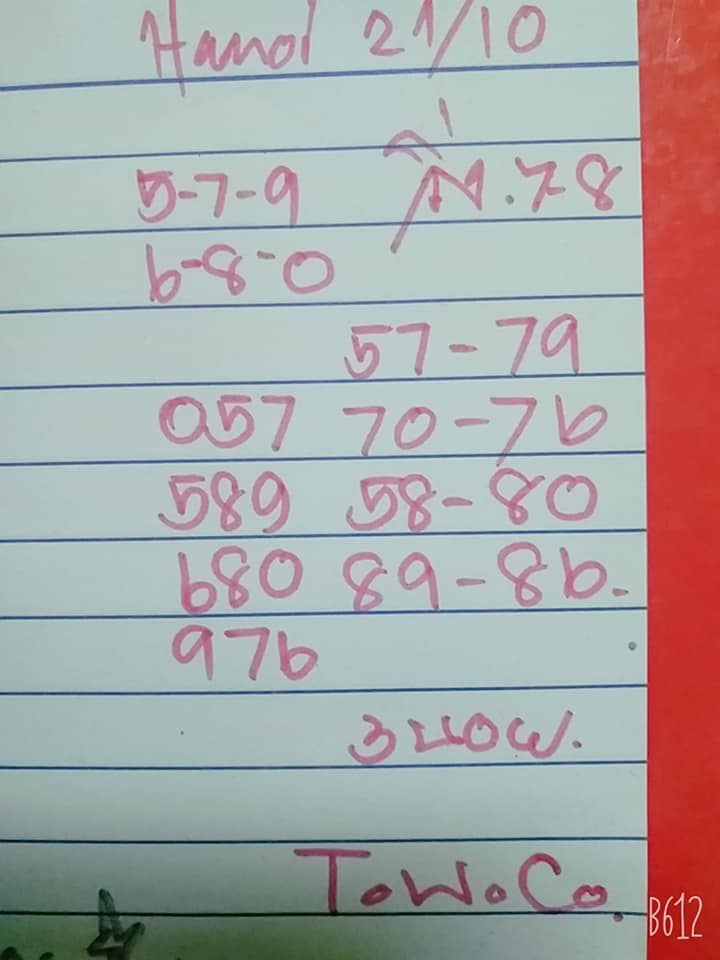 Hanoi 21/10
5-7-9
6-8-0
57-79
057 70-76
589 58-80
680 89-86.
976
T.W.Co.
B612